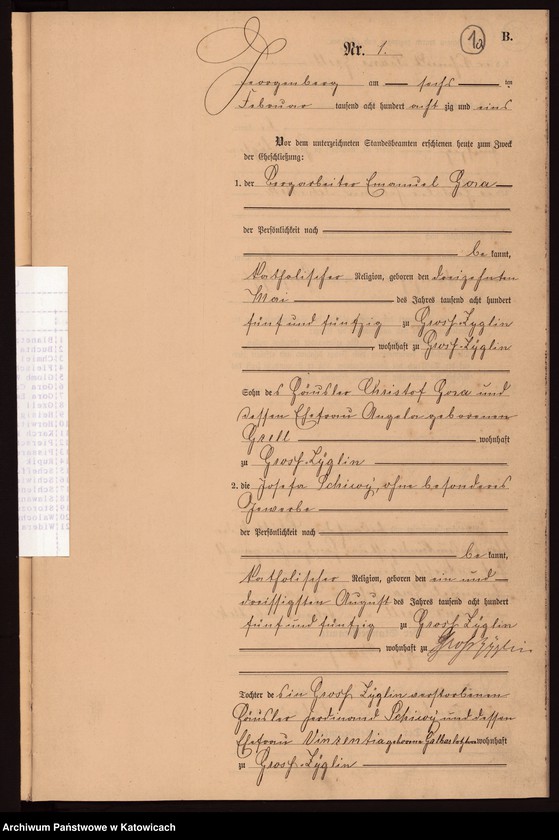 1a
B.
Nr. 1.
Georgenberg am sechs ten
Februar tausend acht hundert acht zig und eins
Vor dem unterzeichneten Standesbeamten erschienen heute zum Zweck
der Eheschließung:
1. der Bergarbeiter Emanuel Gora
der Persönlichkeit nach
be kannt,
katholischer Religion, geboren den dreizehnten
Mai des Jahres tausend acht hundert
fünf und fünfzig zu Gross-Zyglin
, wohnhaft zu Gross-Zyglin
Sohn des Häusler Christof Gora und
dessen Ehefrau Angela geborenen
Grell wohnhaft
zu Gross-Zyglin
2. die Josefa ohne besonderes
Gewerbe
der Persönlichkeit nach
be kannt,
katholischer Religion, geboren den ein und
dreissigsten August des Jahres tausend acht hundert
fünf und fünfzig zu Gross Zyglin
, wohnhaft zu Gross Zyglin
Tochter des in Gross Zyglin verstorbenen
Häusler Ferdinand und dessen
Ehefrau Vinzentia geborene wohnhaft
zu Gross-Zyglin
Archiwum Państwowe w Katowicach